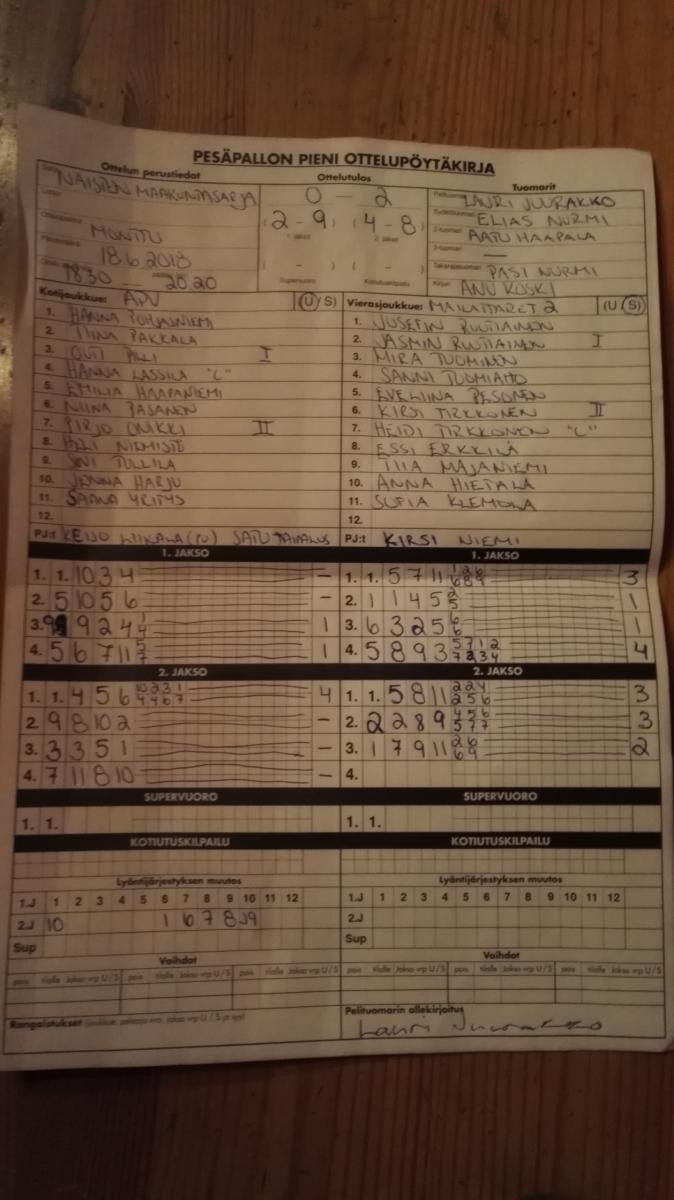 PESÄPALLON PIENI OTTELUPÖYTÄKIRJA
Ottelun perustiedot
Ottelutulos
Tuomarit
NAISTEN MAAKUNTASARJA
MONTTU
18.6.2018
1830 20.20
0 - 2
(2-9) (4-8)
1. jakso 2. jakso
( - ) ( - )
Supervuoro Kotiutuskilpailu
LAURI JUURAKKO
ELIAS NURMI
2-tuomari AATU HAAPALA
3-tuomari —
Takarajatuomari PASI NURMI
Kirjuri ANU KOSKI
Kotijoukkue: (U/S)
1. HANNA POHJASNIEMI
2. TIINA PAKKALA
3. OUTI PILLI I
4. HANNA LASSILA "C"
5. EMILIA HAAPANIEMI
6. NIINA PASANEN
7. PIRJO ONKKI II
8. NIEMISTÖ
9. TULLILA
10. JENNA HARJU
11. SAANA YRITYS
12.
PJ:t KEIJO LIIKALA (PJ) SATU TAIPALUS
Vierasjoukkue: MAILATTARET 2 (U/S)
1. JOSEFIN RUUTIAINEN
2. JASMIN RUUTIAINEN I
3. MIRA TUOMINEN
4. SANNI TUOMIAHO
5. EVELIINA PESONEN
6. KIRSI TIRKKONEN II
7. HEIDI TIRKKONEN "C"
8. ESSI ERKKILÄ
9. TIIA MAJANIEMI
10. ANNA HIETALA
11. SOFIA KLEMOLA
12.
PJ:t KIRSI NIEMI
1. JAKSO
1. 1. 10 3 4 —
2. 5 10 5 6 —
3. 9 9 2 4 1 4 1
4. 5 6 7 11 5 7 1
1. JAKSO
1. 1. 5 7 11 1 2 6 6 8 9 3
2. 1 1 4 5 2 5 1
3. 6 3 2 5 6 6 1
4. 5 8 9 3 5 7 1 2 7 2 3 4 4
2. JAKSO
1. 1. 4 5 6 10 2 3 1 4 4 6 7 4
2. 9 8 10 2 —
3. 3 3 5 1 —
4. 7 11 8 10 —
2. JAKSO
1. 1. 5 8 11 2 2 4 2 5 6 3
2. 2 2 8 9 4 5 6 5 7 7 3
3. 1 7 9 11 2 6 6 9 2
4.
SUPERVUORO
1. 1.
SUPERVUORO
1. 1.
KOTIUTUSKILPAILU
KOTIUTUSKILPAILU
Lyöntijärjestyksen muutos
1.J 1 2 3 4 5 6 7 8 9 10 11 12
2.J 10 1 6 7 8 J9
Sup
Lyöntijärjestyksen muutos
1.J 1 2 3 4 5 6 7 8 9 10 11 12
2.J
Sup
Vaihdot
pois tilalle Jakso vrp U/S pois tilalle Jakso vrp U/S pois tilalle Jakso vrp U/S
Vaihdot
pois tilalle Jakso vrp U/S pois tilalle Jakso vrp U/S pois tilalle Jakso vrp U/S
Rangaistukset
Pelituomarin allekirjoitus
Lauri Juurakko